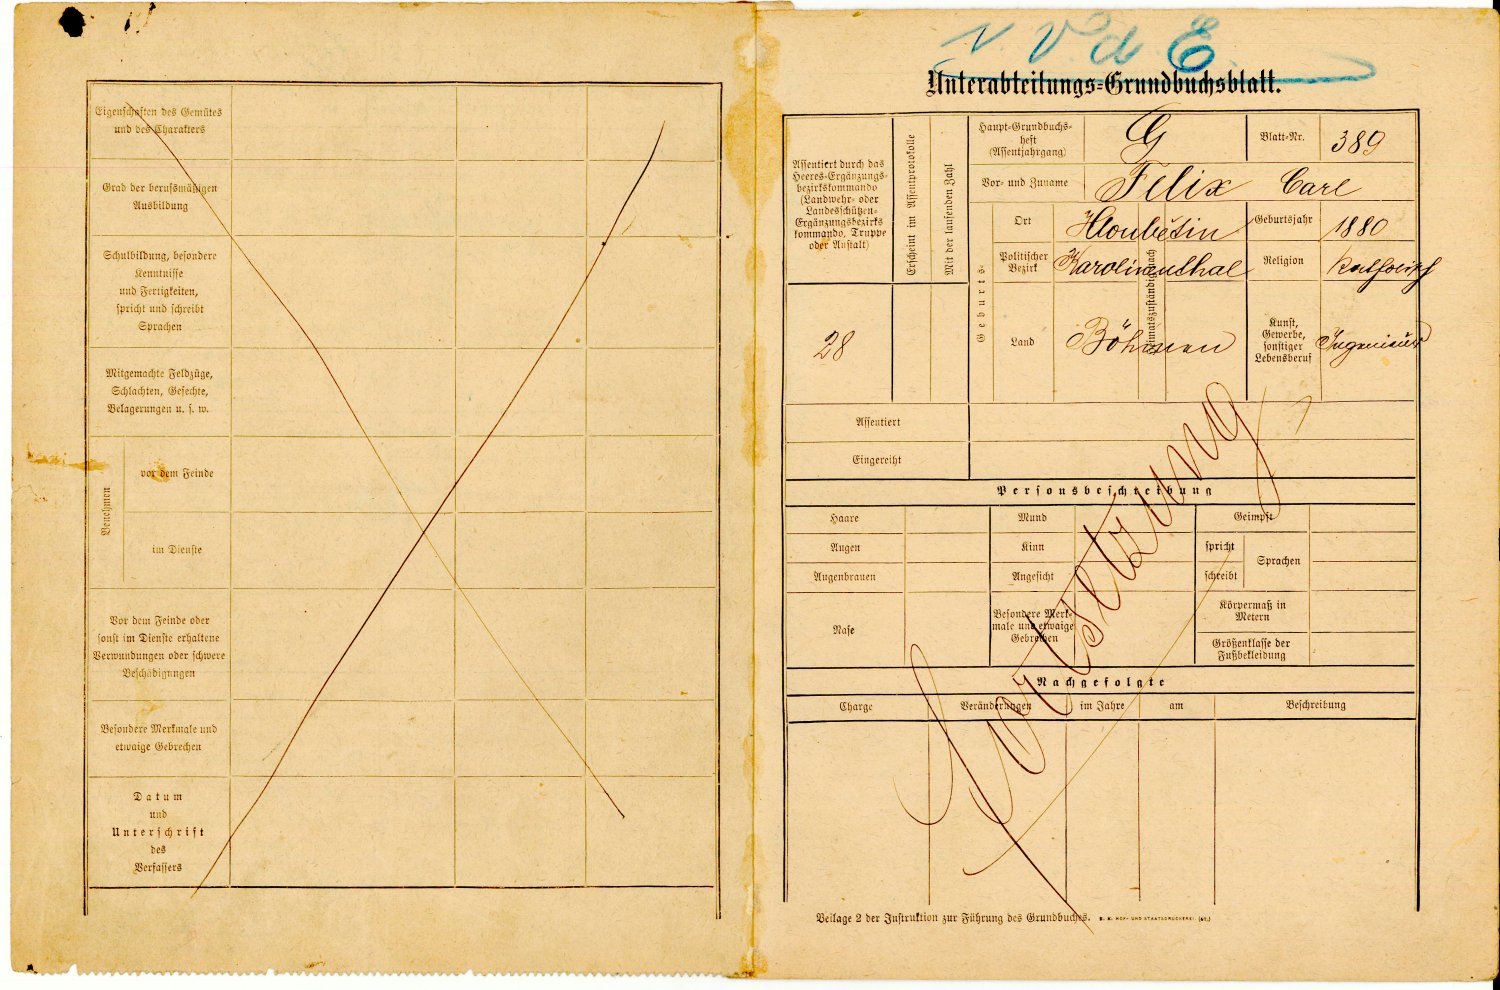 Eigenschaften des Gemütes
und des Charakters
Grad der berufsmäßigen
Ausbildung
Schulbildung, besondere
Kenntnisse
und Fertigkeiten,
spricht und schreibt
Sprachen
Mitgemachte Feldzüge,
Schlachten, Gefechte,
Belagerungen u. s. w.
Benehmen
vor dem Feinde
im Dienste
Vor dem Feinde oder
sonst im Dienste erhaltene
Verwundungen oder schwere
Beschädigungen
Besondere Merkmale und
etwaige Gebrechen
Datum
und
Unterschrift
des
Verfassers
V. d. E.
Unterabteilungs-Grundbuchsblatt.
Assentiert durch das
Heeres-Ergänzungs-
bezirkskommando
(Landwehr- oder
Landesschützen-
Ergänzungsbezirks
kommando, Truppe
oder Anstalt)
Erscheint im Assentprotokolle
Mit der laufenden Zahl
28
Haupt-Grundbuchs-
heft
(Assentjahrgang)
G
Blatt-Nr.
389
Vor- und Zuname
Felix Carl
Geburts-
Ort
Hloubětin
Geburtsjahr
1880
Politischer
Bezirk
Karolinenthal
Religion
katholisch
Land
Böhmen
Heimatszuständig nach
Kunst,
Gewerbe,
sonstiger
Lebensberuf
Ingenieur
Assentiert
Eingereiht
Fortsetzung
Personsbeschreibung
Haare
Mund
Geimpft
Augen
Kinn
spricht
Sprachen
Augenbrauen
Angesicht
schreibt
Nase
Besondere Merk-
male und etwaige
Gebrechen
Körpermaß in
Metern
Größenklasse der
Fußbekleidung
Nachgefolgte
Charge
Veränderungen
im Jahre
am
Beschreibung
Beilage 2 der Instruktion zur Führung des Grundbuches. K. K. HOF- UND STAATSDRUCKEREI.